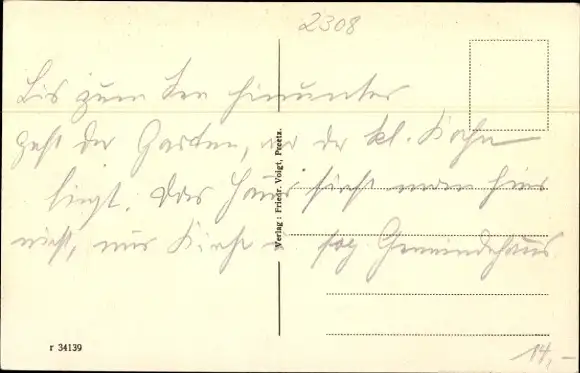 2308
Bis zum See hinunter
geht der Garten, wo der kl. Kahn
liegt. Das Haus sieht man hier
nicht, nur Kirche u. sog Gemeindehaus.
Verlag: Friedr. Voigt, Preetz.
r 34139
14,-